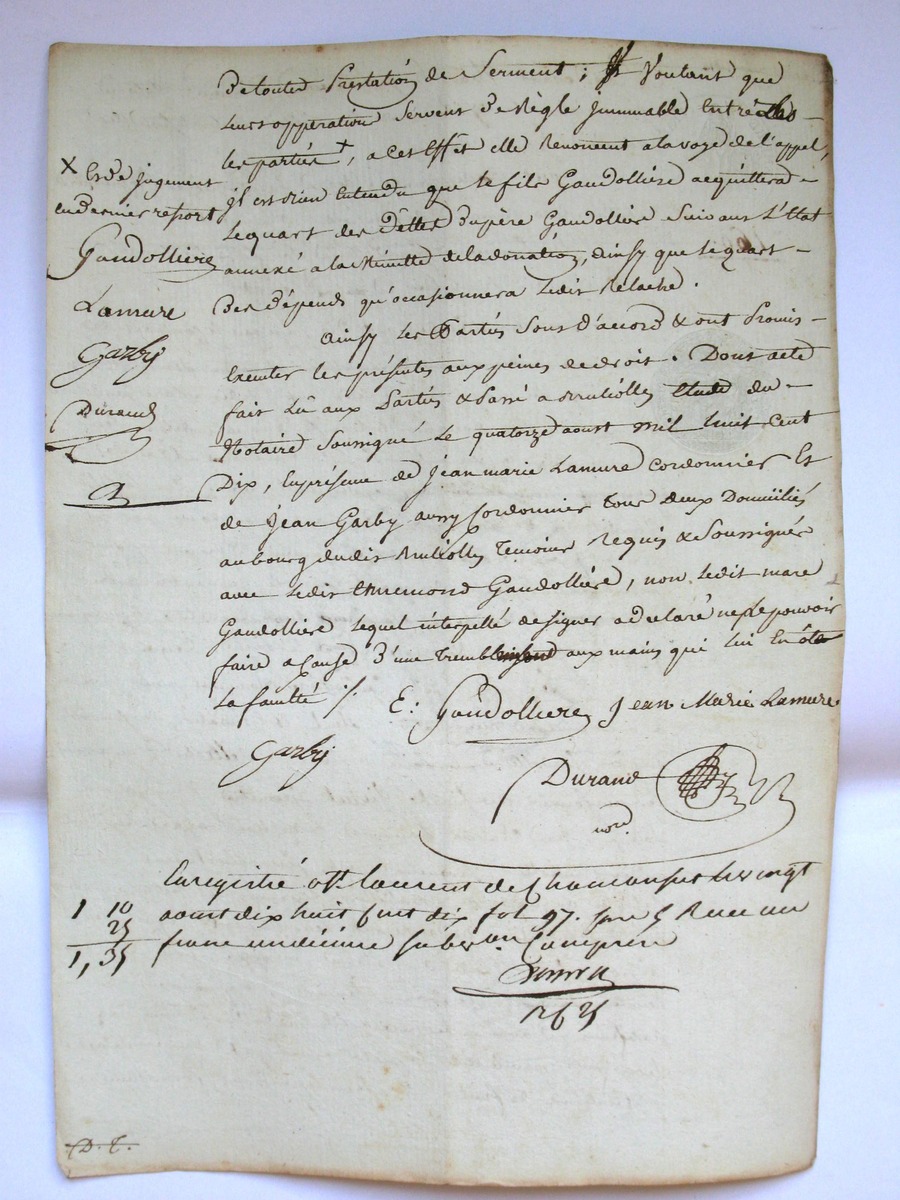 De toutes Prestation de Serment ; Voulant que
leurs opperation Servent De Règle jmmuable Entre Les
les parties +, a cet Effet elle Renoncent a la voye de l'appel,
X Et De jugement
en dernier resort
Gaudolliere
Lamure
Garby
Durand
jl est bien Entendu que le fils Gaudolliere acquittera
le quart des Dettes Du père Gaudolliere Suivant L'Etat
annexé a la Minutte de la donation, dinsy que le quart
Des Dépends qu'occasionnera ledit Relaché.
Ainsy les Partiés Sont D'accord & ont Promis
Executer les présentes aux peines de droit. Dont acte
fait Lû aux Partiés & Passé a Brulliolles Etude du
Notaire Soussigné le quatorze aoust mil huit Cent
Dix, En présence de Jean marie Lamure Cordonnier Et
de Jean Garby aussy Cordonnier tous deux Domiciliés
au bourg dudit Brulliolles Temoins Requis & Soussignés
avec ledit Ennemond Gaudolliere, non ledit marc
Gaudolliere lequel interpellé de signer a declaré ne le pouvoir
faire a Cause D'une Tremblement aux mains qui lui En ôte
La faculté ./.
E: Gaudolliere Jean Marie Lamure
Garby
Durand
nore.
Enregistré a St. laurent de Chamousset le vingt
aoust dix huit Cent dix fol 97. Reçu un
franc un décime Subvon Comprise
1 10
25
1, 35
D. T.